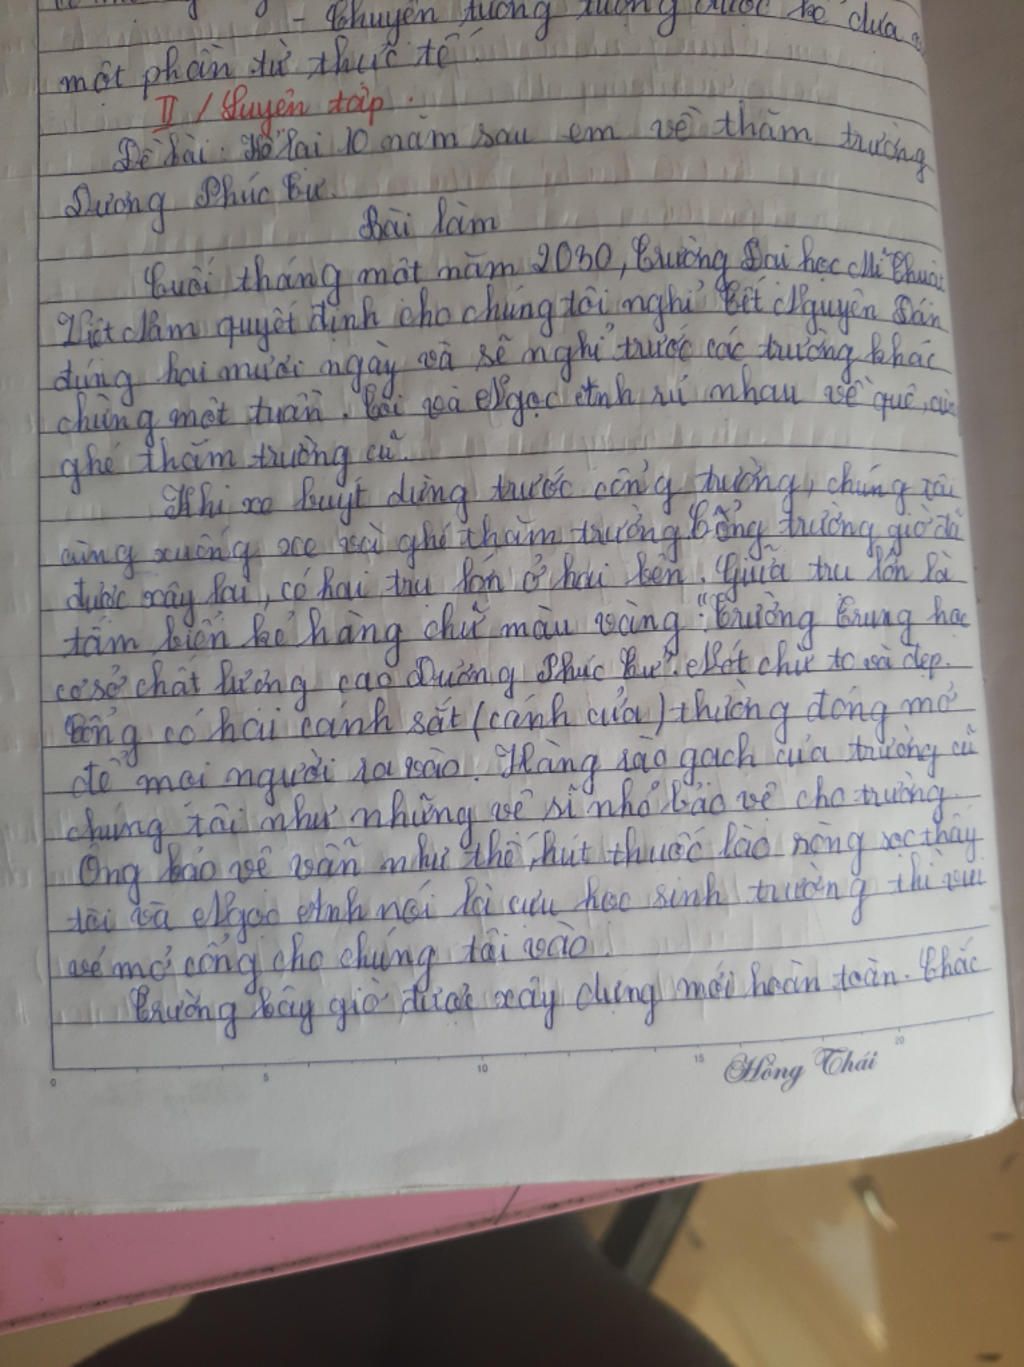 - Chuyện tưởng tượng được kể dựa
một phần từ thực tế.
II / Luyện tập.
Đề bài: Kể lại 10 năm sau em về thăm trường
Dương Phúc Tư.
Bài làm
Cuối tháng một năm 2030, Trường Đại học Mĩ Thuật
Việt Nam quyết định cho chúng tôi nghỉ Tết Nguyên Đán
đúng hai mươi ngày và sẽ nghỉ trước các trường khác
chừng một tuần. Tôi và Ngọc Anh rủ nhau về quê,
ghé thăm trường cũ.
Khi xe buýt dừng trước cổng trường, chúng tôi
cùng xuống xe và ghé thăm trường. Cổng trường giờ đã
được xây lại, có hai trụ lớn ở hai bên. Giữa trụ lớn là
tấm biển kẻ hàng chữ màu vàng: "Trường Trung học
cơ sở chất lượng cao Dương Phúc Tư". Nét chữ to và đẹp.
Cổng có hai cánh sắt (cánh cửa) thường đóng mở
để mọi người ra vào. Hàng rào gạch của trường cũ
chúng tôi như những vệ sĩ nhỏ bảo vệ cho trường.
Ông bảo vệ vẫn như thế, hút thuốc lào sòng sọc thấy
tôi và Ngọc Anh nói là cựu học sinh trường thì vui
vẻ mở cổng cho chúng tôi vào.
Trường bây giờ được xây dựng mới hoàn toàn. Chắc
0 5 10 15 20
Hồng Thái